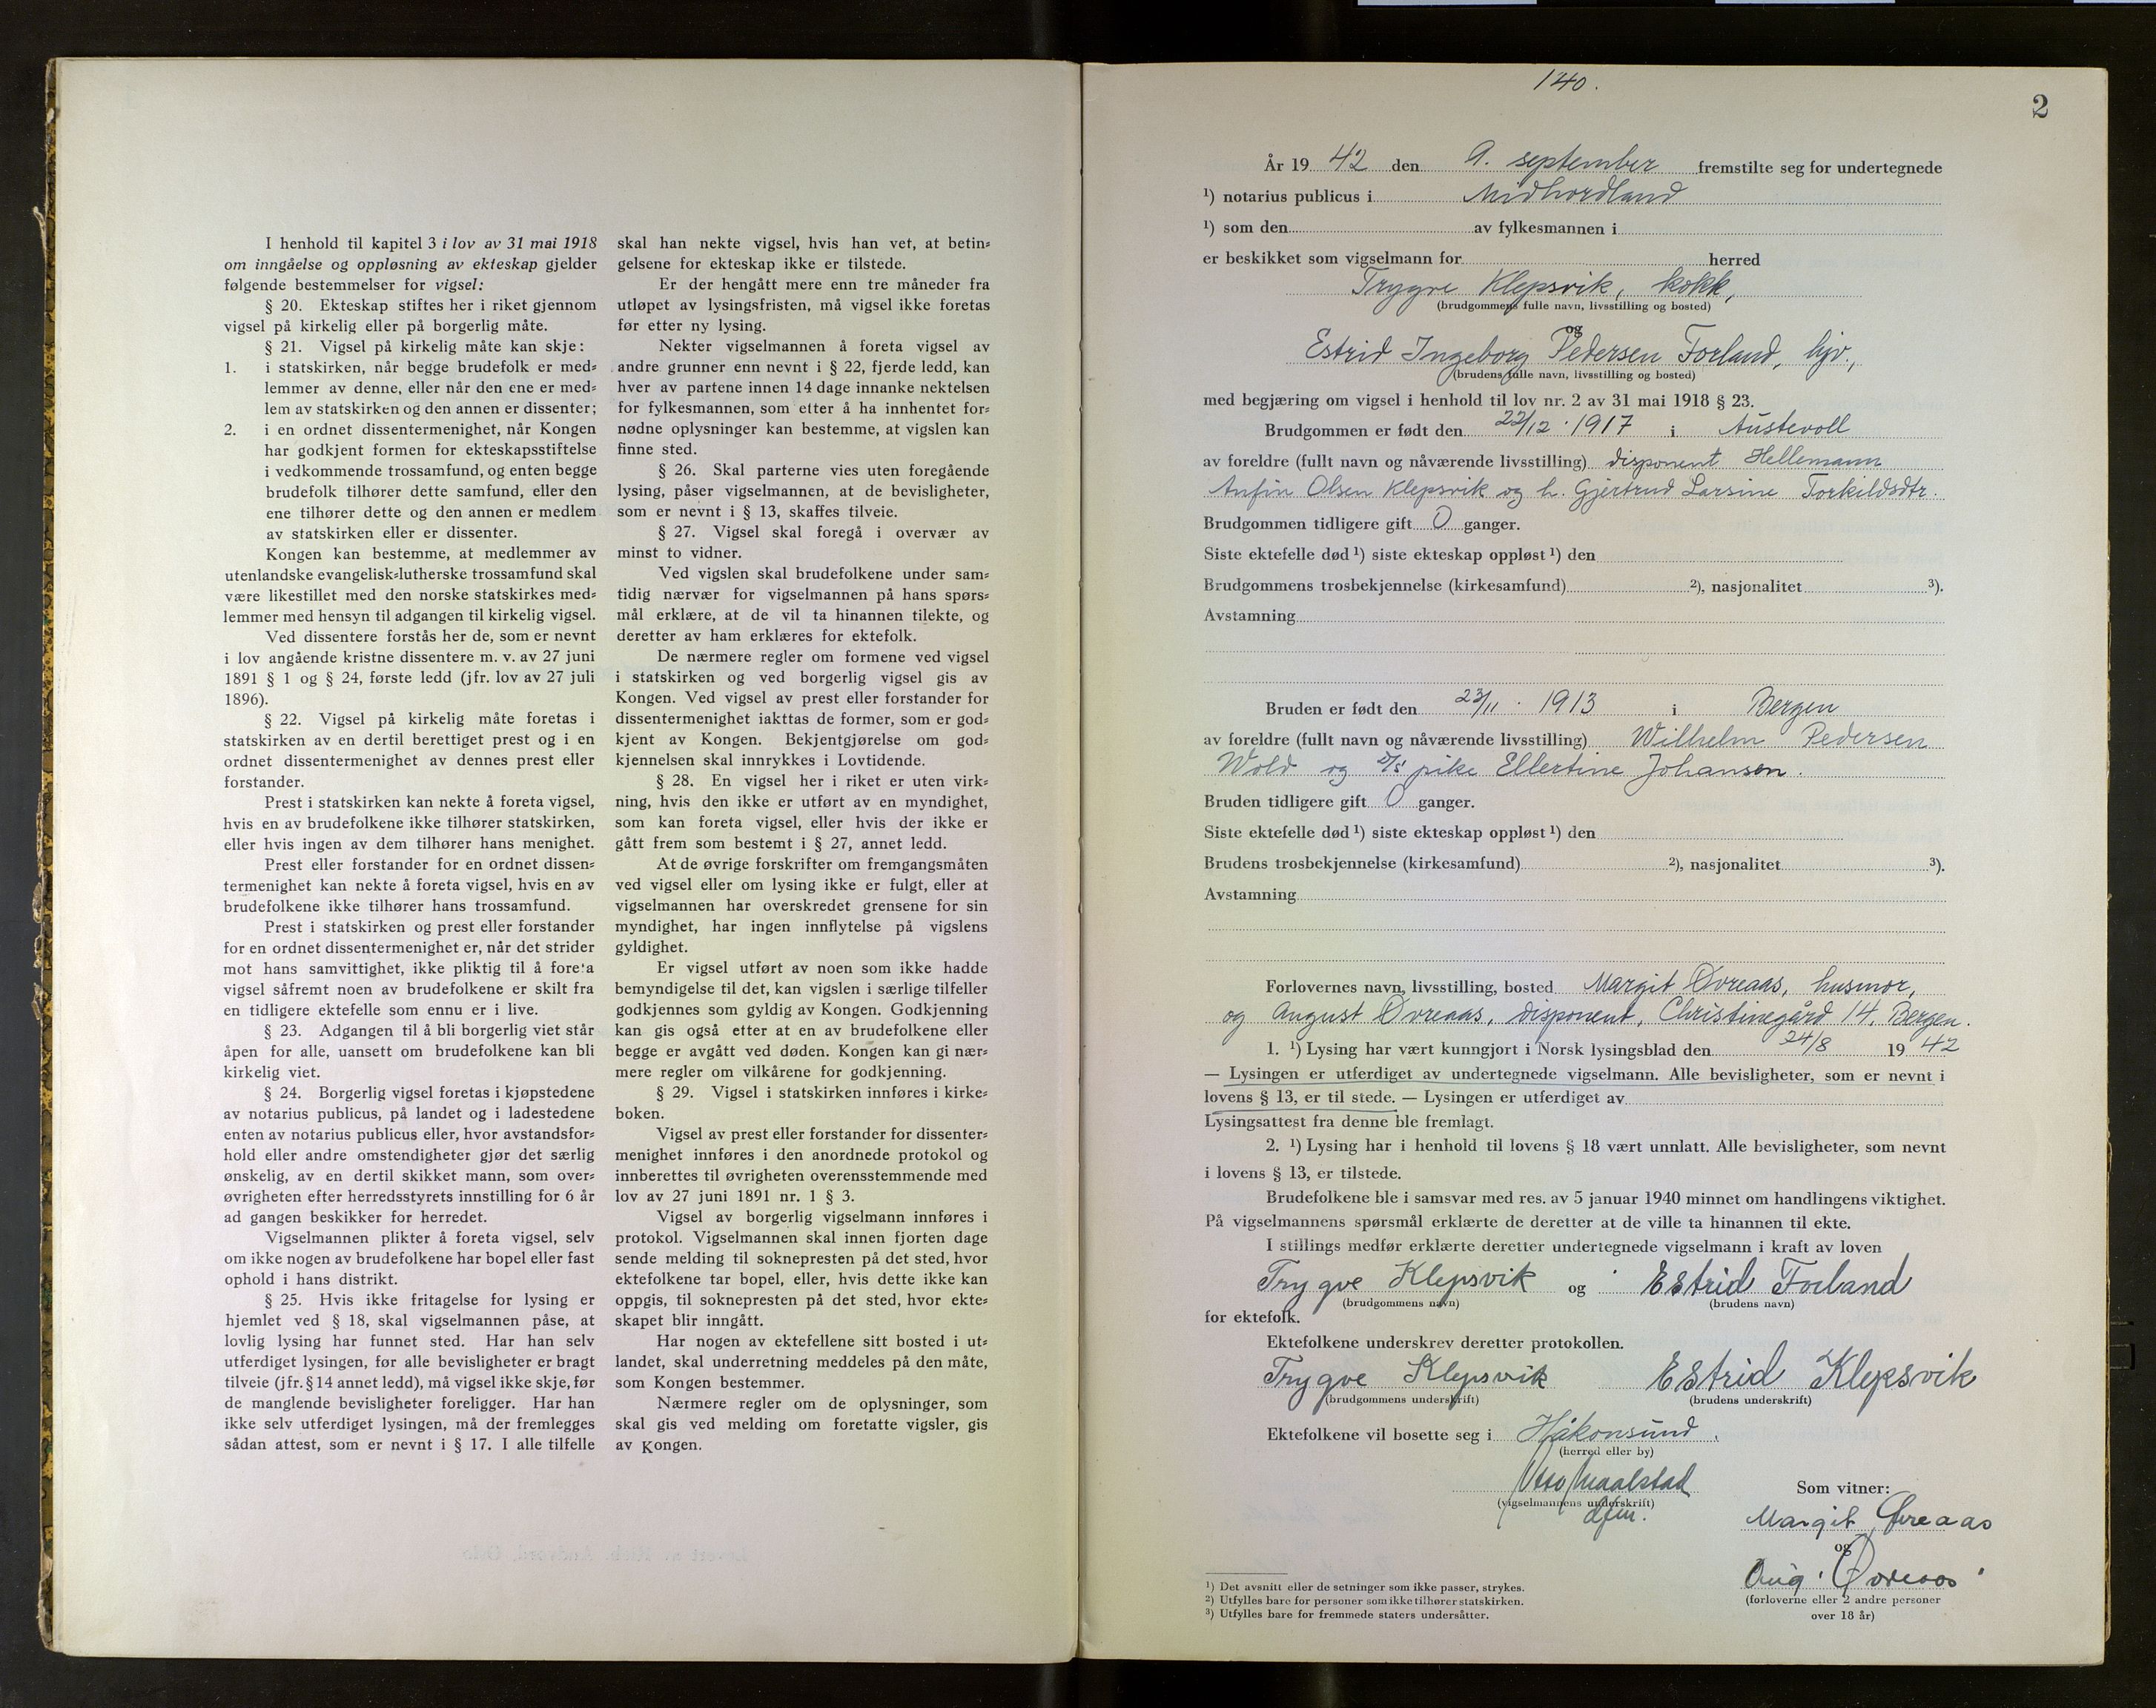 I henhold til kapitel 3 i lov av 31 mai 1918
om inngåelse og oppløsning av ekteskap gjelder
følgende bestemmelser for vigsel:
§ 20. Ekteskap stiftes her i riket gjennom
vigsel på kirkelig eller på borgerlig måte.
§ 21. Vigsel på kirkelig måte kan skje:
1. i statskirken, når begge brudefolk er med=
lemmer av denne, eller når den ene er med=
lem av statskirken og den annen er dissenter;
2. i en ordnet dissentermenighet, når Kongen
har godkjent formen for ekteskapsstiftelse
i vedkommende trossamfund, og enten begge
brudefolk tilhører dette samfund, eller den
ene tilhører dette og den annen er medlem
av statskirken eller er dissenter.
Kongen kan bestemme, at medlemmer av
utenlandske evangelisk=lutherske trossamfund skal
være likestillet med den norske statskirkes med=
lemmer med hensyn til adgangen til kirkelig vigsel.
Ved dissentere forstås her de, som er nevnt
i lov angående kristne dissentere m. v. av 27 juni
1891 § 1 og § 24, første ledd (jfr. lov av 27 juli
1896).
§ 22. Vigsel på kirkelig måte foretas i
statskirken av en dertil berettiget prest og i en
ordnet dissentermenighet av dennes prest eller
forstander.
Prest i statskirken kan nekte å foreta vigsel,
hvis en av brudefolkene ikke tilhører statskirken,
eller hvis ingen av dem tilhører hans menighet.
Prest eller forstander for en ordnet dissen=
termenighet kan nekte å foreta vigsel, hvis en av
brudefolkene ikke tilhører hans trossamfund.
Prest i statskirken og prest eller forstander
for en ordnet dissentermenighet er, når det strider
mot hans samvittighet, ikke pliktig til å foreta
vigsel såfremt noen av brudefolkene er skilt fra
en tidligere ektefelle som ennu er i live.
§ 23. Adgangen til å bli borgerlig viet står
åpen for alle, uansett om brudefolkene kan bli
kirkelig viet.
§ 24. Borgerlig vigsel foretas i kjøpstedene
av notarius publicus, på landet og i ladestedene
enten av notarius publicus eller, hvor avstandsfor=
hold eller andre omstendigheter gjør det særlig
ønskelig, av en dertil skikket mann, som over=
øvrigheten efter herredsstyrets innstilling for 6 år
ad gangen beskikker for herredet.
Vigselmannen plikter å foreta vigsel, selv
om ikke nogen av brudefolkene har bopel eller fast
ophold i hans distrikt.
§ 25. Hvis ikke fritagelse for lysing er
hjemlet ved § 18, skal vigselmannen påse, at
lovlig lysing har funnet sted. Har han selv
utferdiget lysingen, før alle bevisligheter er bragt
tilveie (jfr. § 14 annet ledd), må vigsel ikke skje, før
de manglende bevisligheter foreligger. Har han
ikke selv utferdiget lysingen, må der fremlegges
sådan attest, som er nevnt i § 17. I alle tilfelle
skal han nekte vigsel, hvis han vet, at betin=
gelsene for ekteskap ikke er tilstede.
Er der hengått mere enn tre måneder fra
utløpet av lysingsfristen, må vigsel ikke foretas
før etter ny lysing.
Nekter vigselmannen å foreta vigsel av
andre grunner enn nevnt i § 22, fjerde ledd, kan
hver av partene innen 14 dage innanke nektelsen
for fylkesmannen, som etter å ha innhentet for=
nødne oplysninger kan bestemme, at vigslen kan
finne sted.
§ 26. Skal parterne vies uten foregående
lysing, påser vigselmannen, at de bevisligheter,
som er nevnt i § 13, skaffes tilveie.
§ 27. Vigsel skal foregå i overvær av
minst to vidner.
Ved vigslen skal brudefolkene under sam=
tidig nærvær for vigselmannen på hans spørs=
mål erklære, at de vil ta hinannen tilekte, og
deretter av ham erklæres for ektefolk.
De nærmere regler om formene ved vigsel
i statskirken og ved borgerlig vigsel gis av
Kongen. Ved vigsel av prest eller forstander for
dissentermenighet iakttas de former, som er god=
kjent av Kongen. Bekjentgjørelse om god=
kjennelsen skal innrykkes i Lovtidende.
§ 28. En vigsel her i riket er uten virk=
ning, hvis den ikke er utført av en myndighet,
som kan foreta vigsel, eller hvis der ikke er
gått frem som bestemt i § 27, annet ledd.
At de øvrige forskrifter om fremgangsmåten
ved vigsel eller om lysing ikke er fulgt, eller at
vigselmannen har overskredet grensene for sin
myndighet, har ingen innflytelse på vigslens
gyldighet.
Er vigsel utført av noen som ikke hadde
bemyndigelse til det, kan vigslen i særlige tilfeller
godkjennes som gyldig av Kongen. Godkjenning
kan gis også etter at en av brudefolkene eller
begge er avgått ved døden. Kongen kan gi nær=
mere regler om vilkårene for godkjenning.
§ 29. Vigsel i statskirken innføres i kirke=
boken.
Vigsel av prest eller forstander for dissenter=
menighet innføres i den anordnede protokol og
innberettes til øvrigheten overensstemmende med
lov av 27 juni 1891 nr. 1 § 3.
Vigsel av borgerlig vigselmann innføres i
protokol. Vigselmannen skal innen fjorten dage
sende melding til soknepresten på det sted, hvor
ektefolkene tar bopel, eller, hvis dette ikke kan
oppgis, til soknepresten på det sted, hvor ekte=
skapet blir inngått.
Har nogen av ektefellene sitt bosted i ut=
landet, skal underretning meddeles på den måte,
som Kongen bestemmer.
Nærmere regler om de oplysninger, som
skal gis ved melding om foretatte vigsler, gis
av Kongen.
140.
2
År 19 42 den 9. september fremstilte seg for undertegnede
¹) notarius publicus i Midhordland
¹) som den av fylkesmannen i
er beskikket som vigselmann for herred
Trygve Klepsvik, kokk,
(brudgommens fulle navn, livsstilling og bosted)
og
Estrid Ingeborg Pedersen Forland, hjv.,
(brudens fulle navn, livsstilling og bosted)
med begjæring om vigsel i henhold til lov nr. 2 av 31 mai 1918 § 23.
Brudgommen er født den 22/12 . 1917 i Austevoll
av foreldre (fullt navn og nåværende livsstilling) disponent Hellemann
Anfin Olsen Klepsvik og h. Gjertrud Larsine Torkildsdtr.
Brudgommen tidligere gift 0 ganger.
Siste ektefelle død ¹) siste ekteskap oppløst ¹) den
Brudgommens trosbekjennelse (kirkesamfund) ²), nasjonalitet ³).
Avstamning
Bruden er født den 23/11 . 1913 i Bergen
av foreldre (fullt navn og nåværende livsstilling) Wilhelm Pedersen
Wold og pike Ellertine Johansen.
Bruden tidligere gift 0 ganger.
Siste ektefelle død ¹) siste ekteskap oppløst ¹) den
Brudens trosbekjennelse (kirkesamfund) ²), nasjonalitet ³).
Avstamning
Forlovernes navn, livsstilling, bosted Margit Øvreaas, husmor,
og August Øvreaas, disponent, Christinegård 14, Bergen.
1. ¹) Lysing har vært kunngjort i Norsk lysingsblad den 24/8 19 42
— Lysingen er utferdiget av undertegnede vigselmann. Alle bevisligheter, som er nevnt i
lovens § 13, er til stede. — Lysingen er utferdiget av
Lysingsattest fra denne ble fremlagt.
2. ¹) Lysing har i henhold til lovens § 18 vært unnlatt. Alle bevisligheter, som nevnt
i lovens § 13, er tilstede.
Brudefolkene ble i samsvar med res. av 5 januar 1940 minnet om handlingens viktighet.
På vigselmannens spørsmål erklærte de deretter at de ville ta hinannen til ekte.
I stillings medfør erklærte deretter undertegnede vigselmann i kraft av loven
Trygve Klepsvik og Estrid Forland
(brudgommens navn) (brudens navn)
for ektefolk.
Ektefolkene underskrev deretter protokollen.
Trygve Klepsvik Estrid Klepsvik
(brudgommens underskrift) (brudens underskrift)
Ektefolkene vil bosette seg i Håkonsund.
(herred eller by)
Otto Maalstad
(vigselmannens underskrift)
dfm.
Som vitner:
Margit Øvreaas
og
Aug. Øvreaas
(forloverne eller 2 andre personer
over 18 år)
¹) Det avsnitt eller de setninger som ikke passer, strykes.
²) Utfylles bare for personer som ikke tilhører statskirken.
³) Utfylles bare for fremmede staters undersåtter.